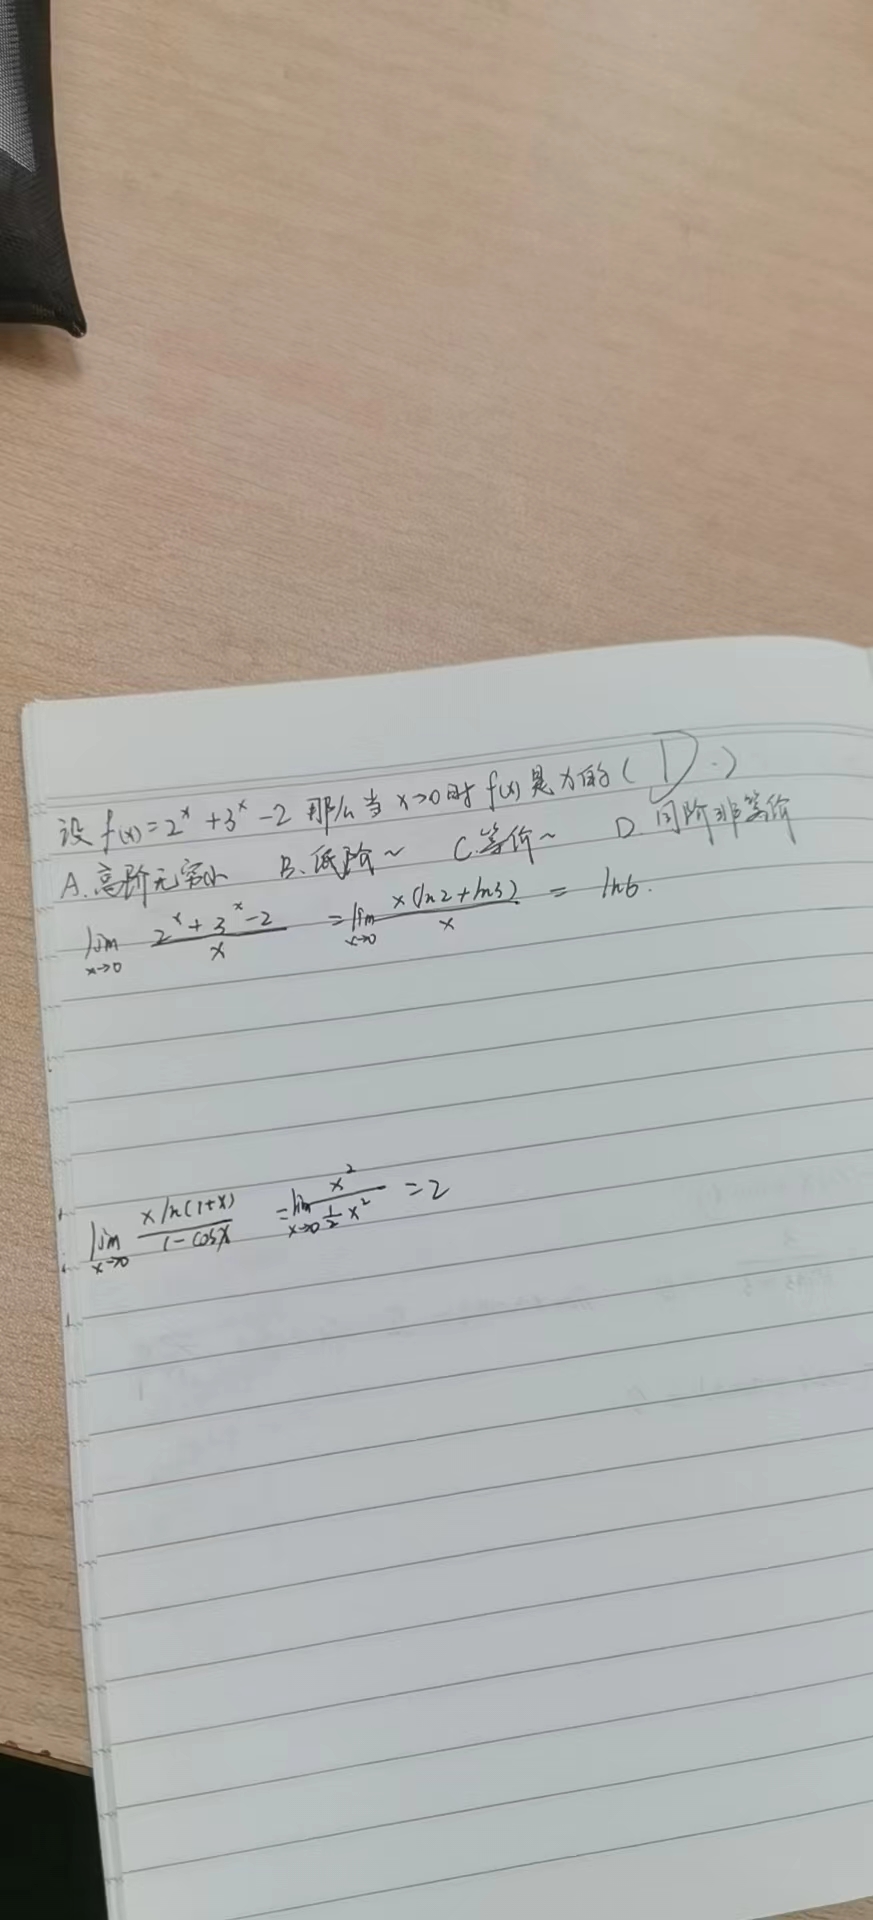 设 f(x)=2^x+3^x-2 那么当 x→0时 f(x) 是 的 ( D . )
A.高阶无穷小 B.低阶~ C.等价~ D 同阶非等价
lim x→0 (2^x+3^x-2)/x = lim x→0 x(ln2+ln3)/x = ln6.
lim x→0 xln(1+x)/(1-cosx) = lim x→0 x^2/(1/2 x^2) = 2